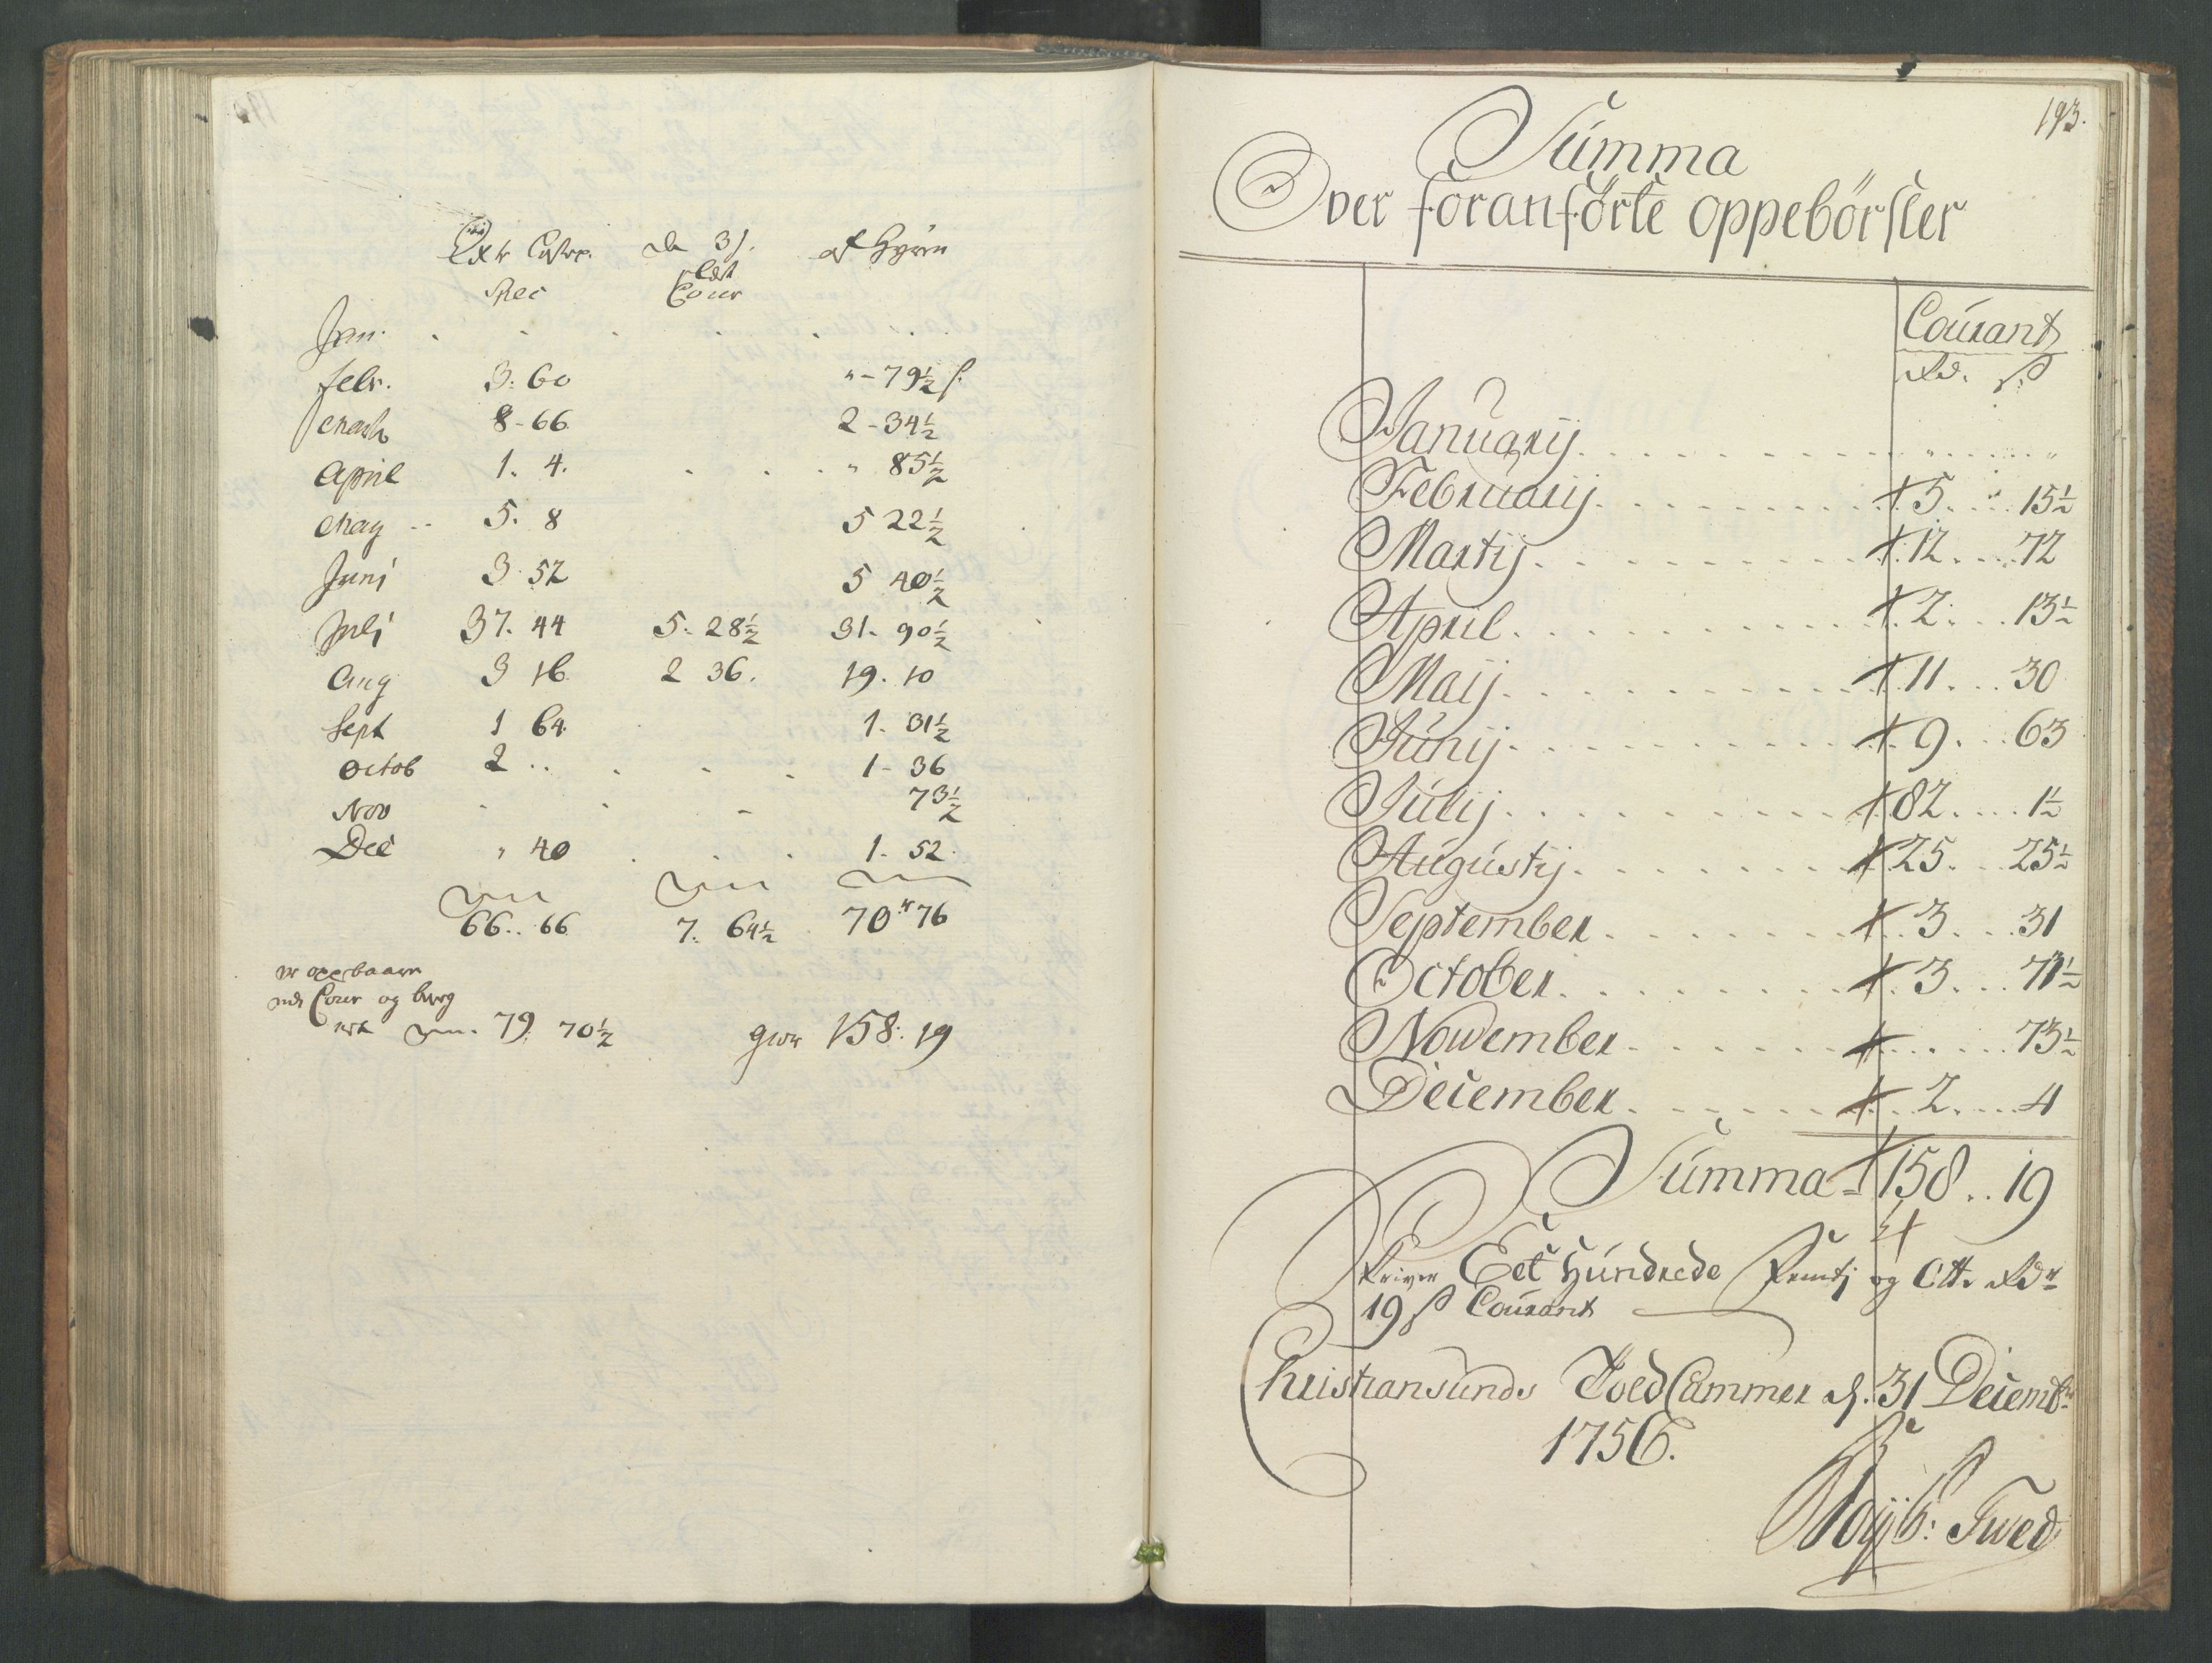 Jan.
febr. 3: 60 " - 79½ ß
March 8 - 66 2 - 34½
April 1. 4. " 85½
May 5. 8 5 22½
Junj 3. 52 5 40½
Julj 37. 44 5. 28½ 31. 90½
Aug 3 16 2 36. 19. 10
Sept 1 64 1. 31½
Octob 2 .. 1 - 36
Nov 73½
Dec " 40 1. 52.
66.. 66 7. 64½ 70 76
og
79. 70½ 158: 19
193.
Summa
Over foranförte oppebörster
Courant
Rd. ß
Januarij
Februarij 5 15½
Martij 12 72
April 2 13½
Maij 11 30
Junij 9 63
Julij 82 1½
Augustij 25 25½
September 3 31
October 3 71½
Nowember 73½
December 2 4
Summa 158 19
Skriver Eet Hundrede Femtj og Otte Rdr
19 ß Courant
Christiansunds Toed Cammer d. 31 Decembr
1756.
Twed